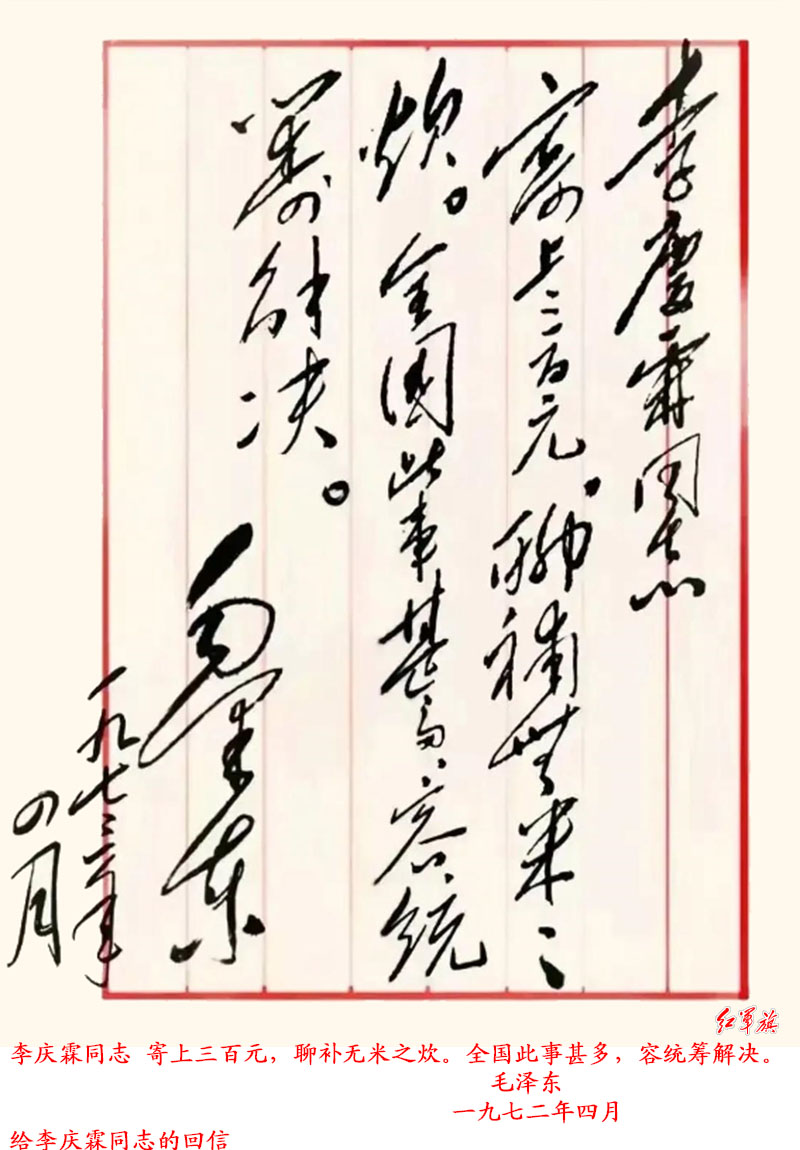 李慶霖同志
寄上三百元，聊補無米之
炊。全國此事甚多，容統
籌解决。
毛泽东
一九七三年
四月
红军旗
李庆霖同志 寄上三百元，聊补无米之炊。全国此事甚多，容统筹解决。
毛泽东
一九七二年四月
给李庆霖同志的回信